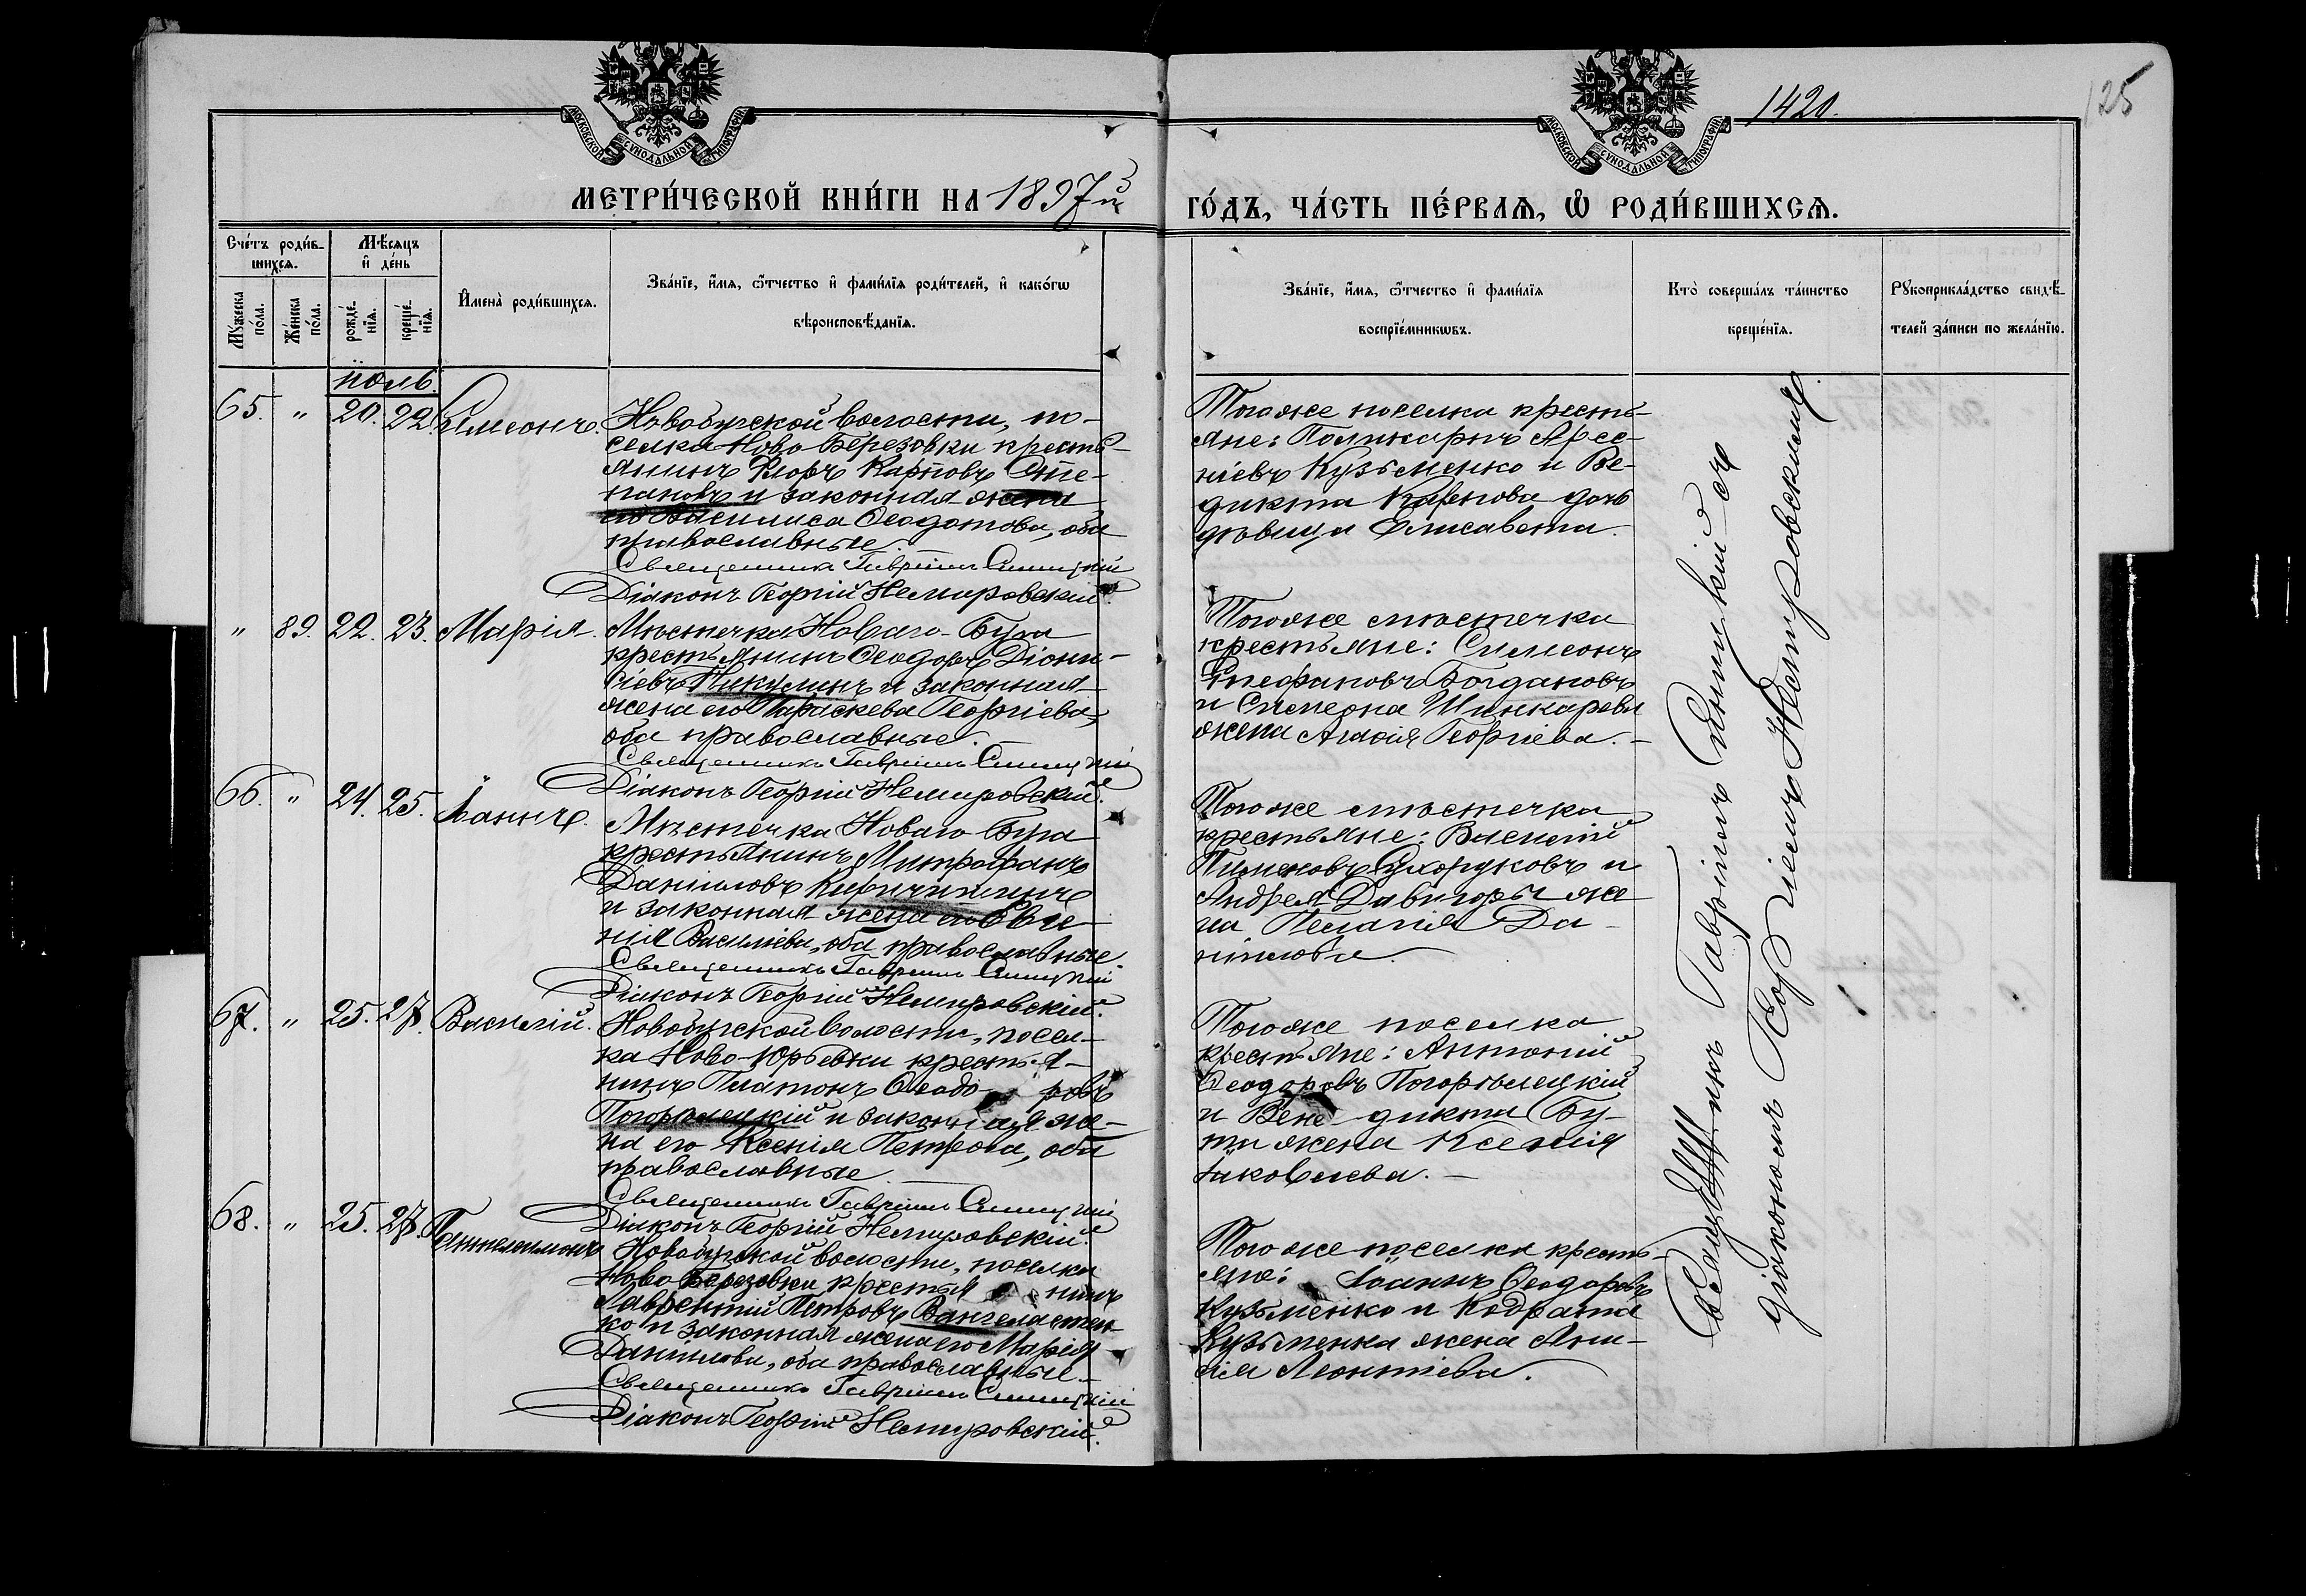 1420.
125
МОСКОВСКОЙ СѴНОДАЛЬНОЙ ТИПОГРАФІИ
МОСКОВСКОЙ СѴНОДАЛЬНОЙ ТИПОГРАФІИ
МЕТРИ́ЧЕСКОЙ КНИ́ГИ НА 1897й
ГО́ДЪ, ЧА́СТЬ ПЕ́РВАѦ, Ѡ РОДИ́ВШИХСѦ.
Сче́тъ роди́в-
шихсѧ.
Мѣ́сѧцъ
и҆ де́нь
Мꙋ́жеска
по́ла.
Же́нска
по́ла.
рожде́-
нїѧ.
креще́-
нїѧ.
И҆мена̀ роди́вшихсѧ.
Зва́нїе, и҆́мѧ, ѻ҆́тчество и҆ фами́лїѧ роди́телей, и҆ како́гѡ
вѣроисповѣ́данїѧ.
Зва́нїе, и҆́мѧ, ѻ҆́тчество и҆ фами́лїѧ
воспрїе́мникѡвъ.
Кто̀ соверша́лъ та́инство
креще́нїѧ.
Рꙋкоприкла́дство свидѣ́-
телей за́писи по жела́нїю.
іюль
65. " 20. 22. Симеонъ.
Новобугской волости, по-
селка Ново-Березовки кресть-
янинъ Карповъ Сте-
пановъ и законная жена
его Василиса Ѳеодотова, оба
православные.
Священникъ Гавріилъ Синицкій
Діаконъ Георгій Немировскій.
Того же поселка кресть-
яне: Поликарпъ Арсе-
ніевъ Кузьменко и Ве-
дикта Карпова дочь
дѣвица Елисавета.
" 89. 22. 23. Марія.
Мѣстечка Новаго-Буга
крестьянинъ Ѳеодоръ Діони-
сіевъ Никулинъ и законная
жена его Параскева Георгіева,
оба православные.
Священникъ Гавріилъ Синицкій
Діаконъ Георгій Немировскій.
Того же мѣстечка
крестьяне: Симеонъ
Богдановъ
и Симеона Шинкарева
жена Георгіева.
66. " 24. 25. Іоаннъ.
Мѣстечка Новаго-Буга
крестьянинъ Митрофанъ
Даніиловъ
и законная жена его Евге-
нія Василіева, оба православные
Священникъ Гавріилъ Синицкій
Діаконъ Георгій Немировскій.
Того же мѣстечка
крестьяне: Василій
Пименовъ Сухоруковъ и
Андрея Давигоры же
на Пелагія Да-
ніилова.
67. " 25. 27. Василій.
Новобугской волости, посел-
ка Ново-Юрьевки крестья-
нинъ Платонъ Ѳеодоровъ
Погорѣлецкій и законная же-
на его Ксенія Петрова, оба
православные
Священникъ Гавріилъ Синицкій
Діаконъ Георгій Немировскій.
Того же поселка
крестьяне: Антоній
Ѳеодоровъ Погорѣлецкій
и Венедикта Бу-
ты жена Ксенія
Іаковлева.
68. " 25. 27. Пантелеимонъ
Новобугской волости, поселка
Ново-Березовки крестьянинъ
Лаврентій Петровъ
ко и законная жена его Марія
Даніилова, оба православные.
Священникъ Гавріилъ Синицкій
Діаконъ Георгій Немировскій.
Того же поселка кресть-
яне: Іоаннъ Ѳеодоровъ
Кузьменко и Кодрата
Кузьменка жена Ани-
сія Леонтіева.
Священникъ Гавріилъ Синицкій съ
діакономъ Георгіемъ Немировскимъ.